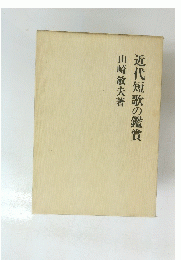 近代短歌の鑑賞
山崎敏夫著